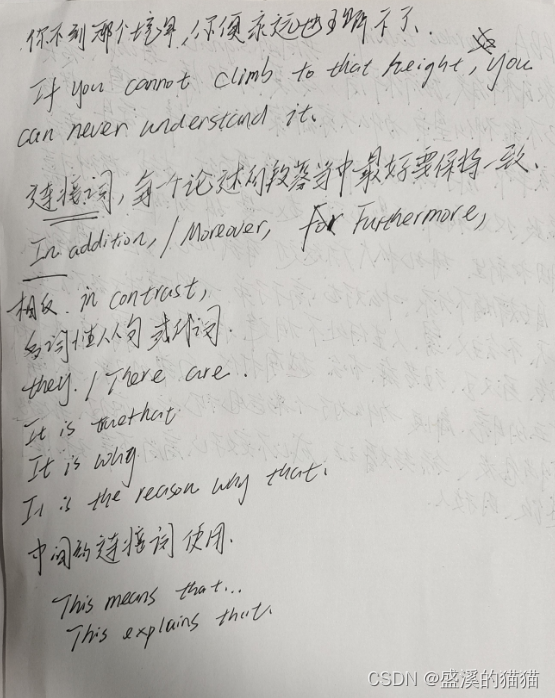 你不到那个境界,你便永远也理解不了.
If you cannot climb to that height, you
can never understand it.
连接词,每个论述的段落当中最好要保持一致.
In addition, / Moreover, For Furthermore,
相反. in contrast,
名词性从句 或代词.
they. / There are.
It is true that.
It is why
It is the reason why that.
中间的连接词使用.
This means that...
This explains that.
CSDN @盛溪的猫猫